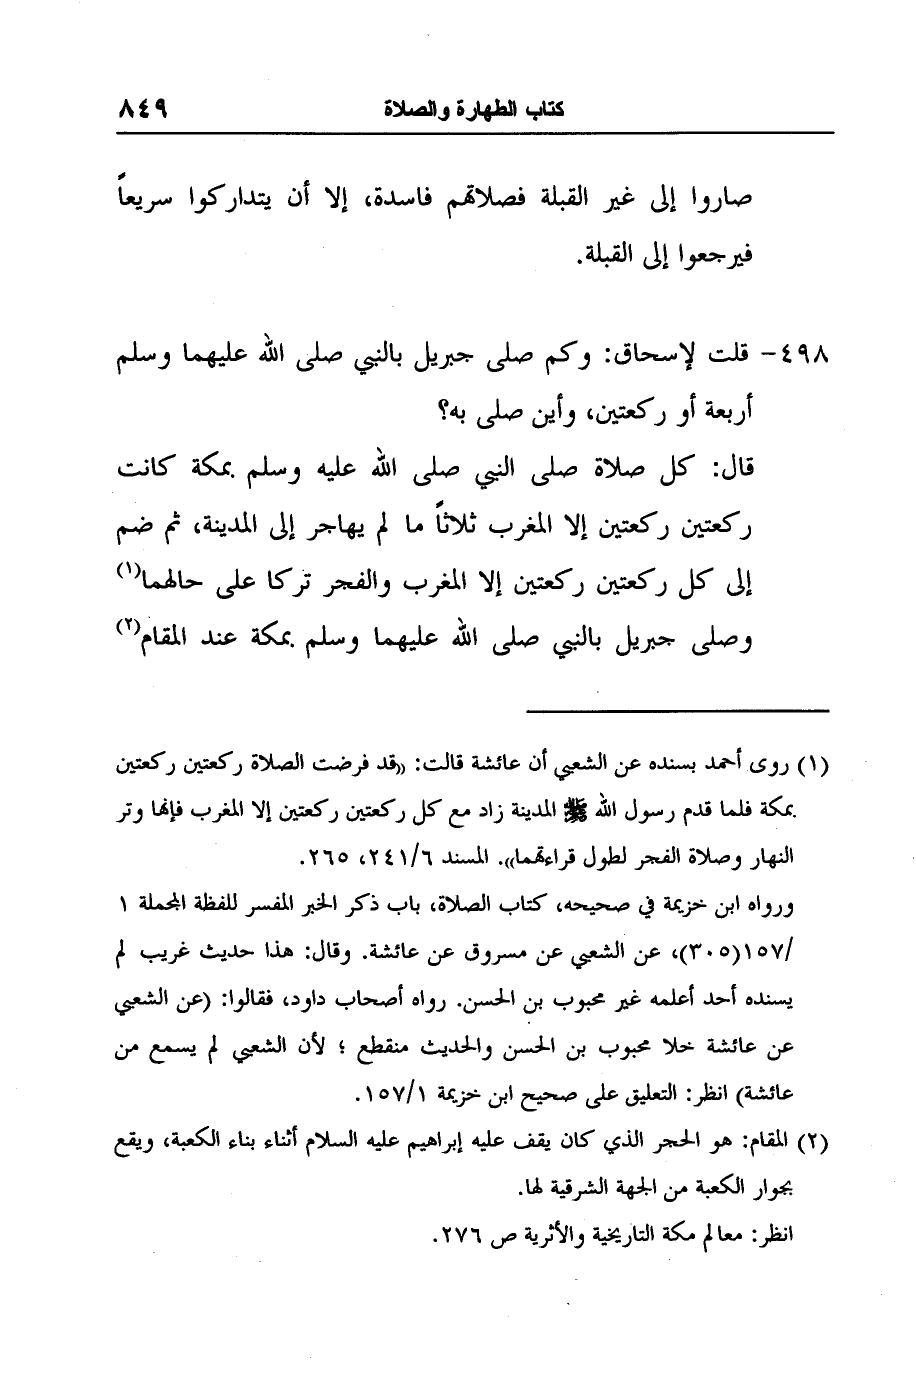 كتاب الطهارة والصلاة ٨٤٩
صاروا إلى غير القبلة فصلاتهم فاسدة، إلا أن يتداركوا سريعاً
فيرجعوا إلى القبلة.
٤٩٨- قلت لإسحاق: وكم صلى جبريل بالنبي صلى الله عليهما وسلم
أربعة أو ركعتين، وأين صلى به؟
قال: كل صلاة صلى النبي صلى الله عليه وسلم بمكة كانت
ركعتين ركعتين إلا المغرب ثلاثاً ما لم يهاجر إلى المدينة، ثم ضم
إلى كل ركعتين ركعتين إلا المغرب والفجر تركا على حالهما(١)
وصلى جبريل بالنبي صلى الله عليهما وسلم بمكة عند المقام(٢)
(١) روى أحمد بسنده عن الشعبي أن عائشة قالت: «قد فرضت الصلاة ركعتين ركعتين
بمكة فلما قدم رسول الله ﷺ المدينة زاد مع كل ركعتين ركعتين إلا المغرب فإنها وتر
النهار وصلاة الفجر لطول قراءتهما». المسند ٢٤١/٦، ٢٦٥.
ورواه ابن خزيمة في صحيحه، كتاب الصلاة، باب ذكر الخبر المفسر للفظة المجملة ١
/١٥٧(٣٠٥)، عن الشعبي عن مسروق عن عائشة. وقال: هذا حديث غريب لم
يسنده أحد أعلمه غير محبوب بن الحسن. رواه أصحاب داود، فقالوا: (عن الشعبي
عن عائشة خلا محبوب بن الحسن والحديث منقطع ؛ لأن الشعبي لم يسمع من
عائشة) انظر: التعليق على صحيح ابن خزيمة ١٥٧/١.
(٢) المقام: هو الحجر الذي كان يقف عليه إبراهيم عليه السلام أثناء بناء الكعبة، ويقع
بجوار الكعبة من الجهة الشرقية لها.
انظر: معالم مكة التاريخية والأثرية ص ٢٧٦.